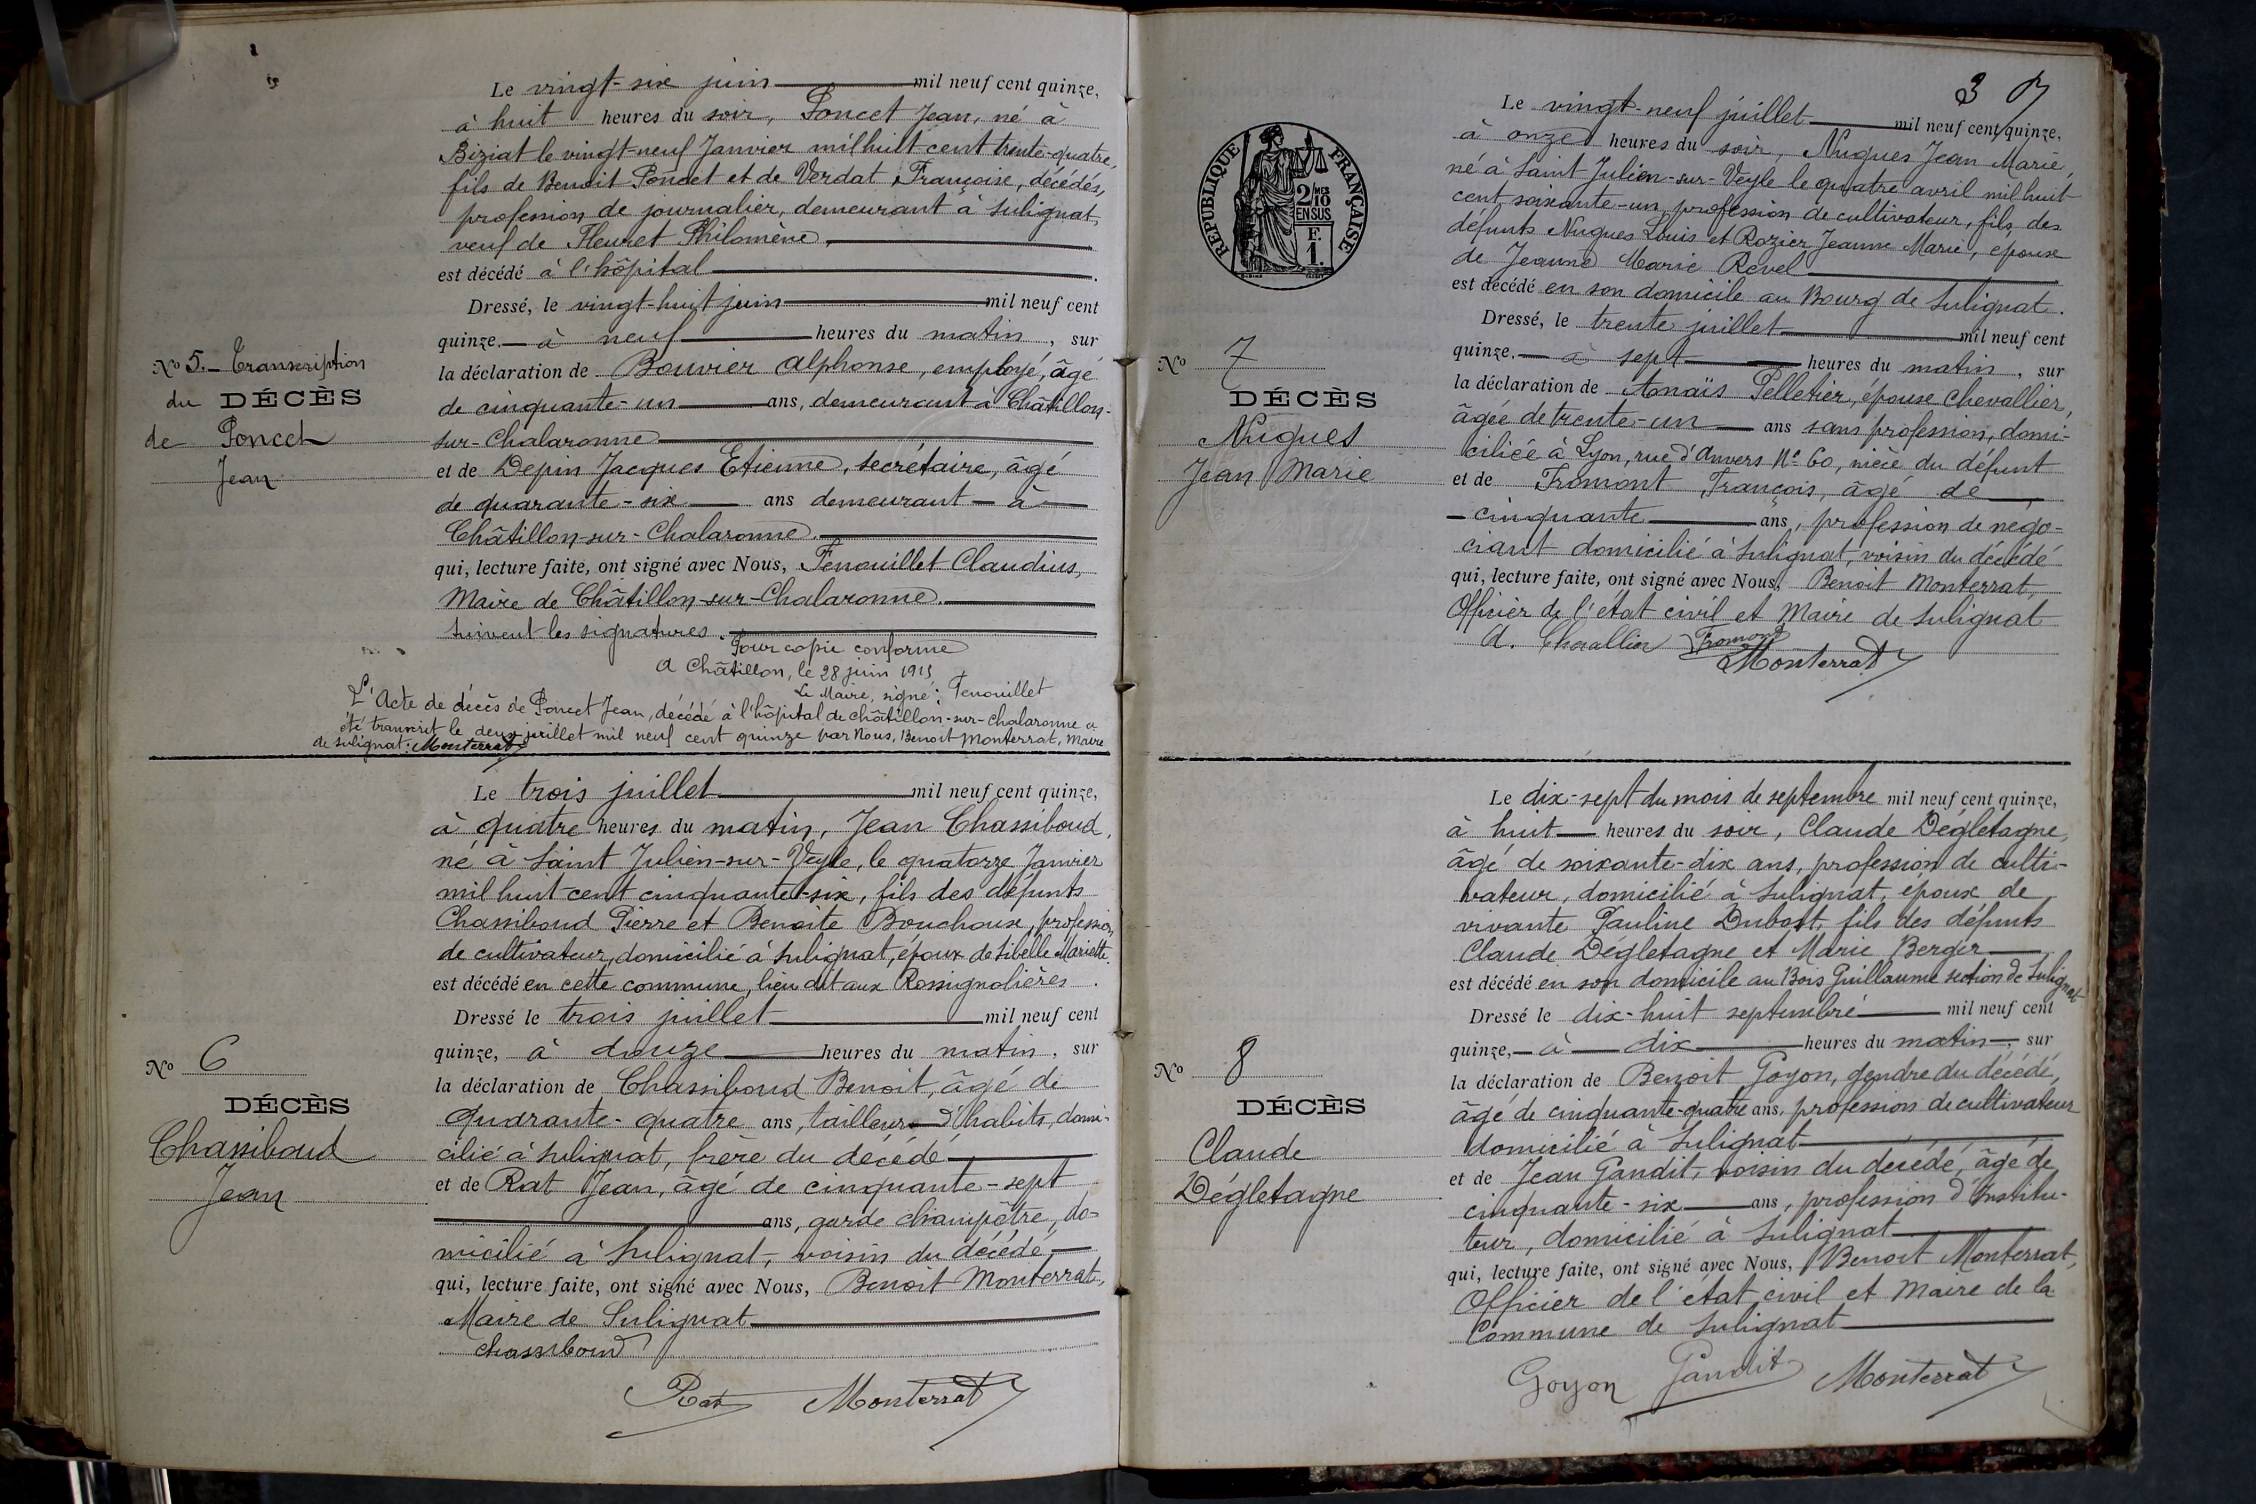 Le vingt-six juin mil neuf cent quinze,
à huit heures du soir, Poncet Jean, né à
Biziat le vingt-neuf Janvier mil huit cent trente-quatre,
fils de Benoit Poncet et de Verdat Françoise, décédés,
profession de journalier, demeurant à Sulignat,
veuf de Fleuret Philomène
est décédé à l'hôpital.
Dressé, le vingt-huit juin mil neuf cent
quinze, à neuf heures du matin, sur
No 5. Transcription
du DÉCÈS
de Poncet
Jean
la déclaration de Bouvier Alphonse, employé, âgé
de cinquante-un ans, demeurant à Châtillon-
sur-Chalaronne
et de Depin Jacques Etienne, secrétaire, âgé
de quarante-six ans demeurant à
Châtillon-sur-Chalaronne.
qui, lecture faite, ont signé avec Nous, Fenouillet Claudius,
Maire de Châtillon-sur-Chalaronne.
Suivent les signatures.
Pour copie conforme
A Châtillon, le 28 juin 1915
Le Maire, signé: Fenouillet
L'Acte de décès de Poncet Jean, décédé à l'hôpital de Châtillon-sur-Chalaronne a
été transcrit le deux juillet mil neuf cent quinze par Nous, Benoit Monterrat, Maire
de Sulignat. Monterrat
Le trois juillet mil neuf cent quinze,
à quatre heures du matin, Jean Chassiboud,
né à Saint Julien-sur-Veyle, le quatorze Janvier
mil huit cent cinquante-six, fils des défunts
Chassiboud Pierre et Benoite Bouchoux, profession
de cultivateur, domicilié à Sulignat, époux de Sibelle Mariette.
est décédé en cette commune, lieu dit aux Rossignolières.
Dressé le trois juillet mil neuf cent
quinze, à douze heures du matin, sur
No 6
DÉCÈS
Chassiboud
Jean
la déclaration de Chassiboud Benoit, âgé de
quarante-quatre ans, tailleur d'habits, domi-
cilié à Sulignat, frère du décédé
et de Rat Jean, âgé de cinquante-sept
ans, garde champêtre, do-
micilié à Sulignat, voisin du décédé,
qui, lecture faite, ont signé avec Nous, Benoit Monterrat,
Maire de Sulignat
chassiboud
Rat Monterrat
3
Le vingt-neuf juillet mil neuf cent quinze,
à onze heures du soir, Nugues Jean Marie,
né à Saint Julien-sur-Veyle le quatre avril mil huit
cent soixante-un, profession de cultivateur, fils des
défunts Nugues Louis et Rozier Jeanne Marie, epoux
de Jeanne Marie Revel
est décédé en son domicile au Bourg de Sulignat.
RÉPUBLIQUE FRANÇAISE
2/10 MES
EN SUS
F.
1.
Dressé, le trente juillet mil neuf cent
quinze. à sept heures du matin, sur
No 7
DÉCÈS
Nugues
Jean Marie
la déclaration de Anaïs Pelletier, épouse Chevallier,
âgée de trente-un ans sans profession, domi-
ciliée à Lyon, rue d'Anvers No 60, nièce du défunt
et de Fromont François, âgé de
cinquante ans, profession de négo-
ciant domicilié à Sulignat, voisin du décédé
qui, lecture faite, ont signé avec Nous, Benoit Monterrat,
Officier de l'état civil et Maire de Sulignat
A. Chevallier Fromont
Monterrat
Le dix-sept du mois de septembre mil neuf cent quinze,
à huit heures du soir, Claude Dégletagne,
âgé de soixante-dix ans, profession de culti-
vateur, domicilié à Sulignat, époux de
vivante Pauline Dubost, fils des défunts
Claude Dégletagne et Marie Berger
est décédé en son domicile au Bois Guillaume section de Sulignat
Dressé le dix-huit septembre mil neuf cent
quinze, à dix heures du matin, sur
No 8
DÉCÈS
Claude
Dégletagne
la déclaration de Benoit Goyon, gendre du décédé,
âgé de cinquante-quatre ans, profession de cultivateur
domicilié à Sulignat
et de Jean Gandit, voisin du décédé, âgé de
cinquante-six ans, profession d'Institu-
teur, domicilié à Sulignat
qui, lecture faite, ont signé avec Nous, Benoit Monterrat,
Officier de l'état civil et Maire de la
Commune de Sulignat
Goyon Gandit Monterrat